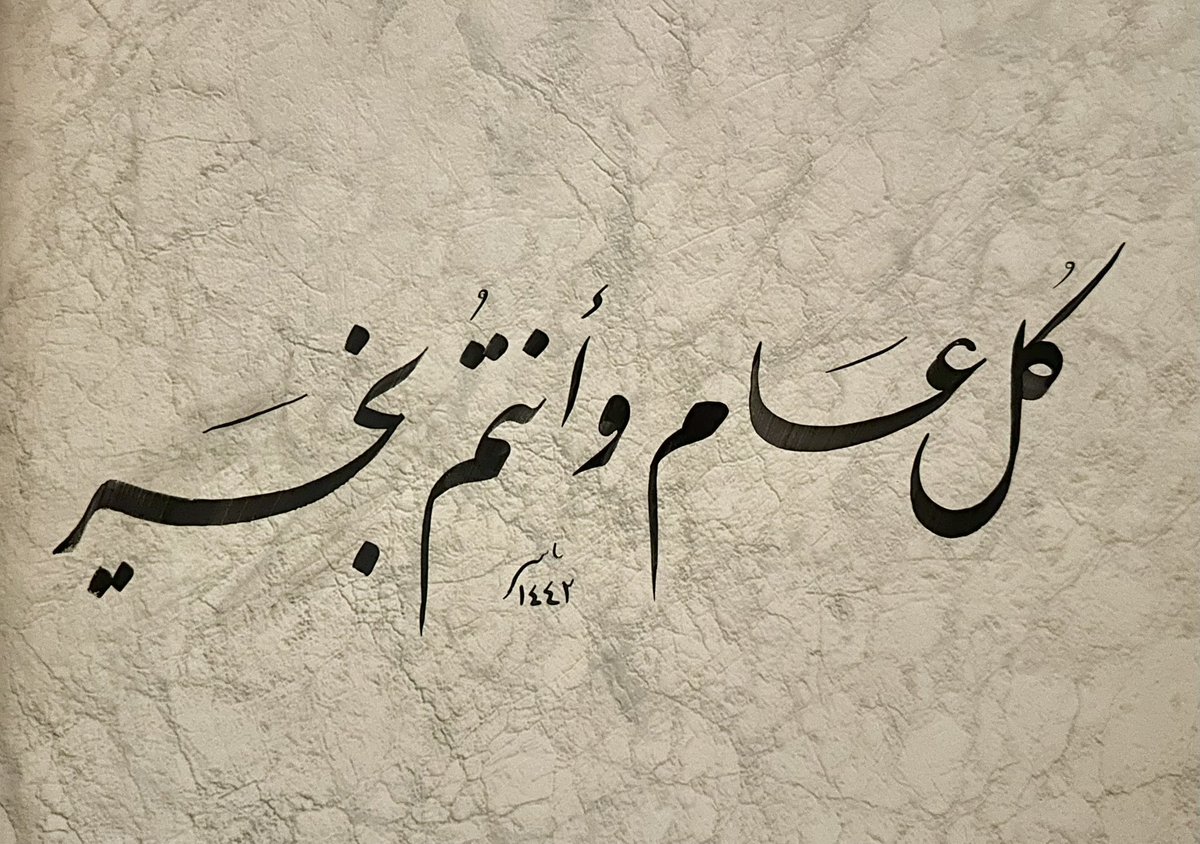 كُل عَام وأَنتمُ بخَير
ياسر
١٤٤٢